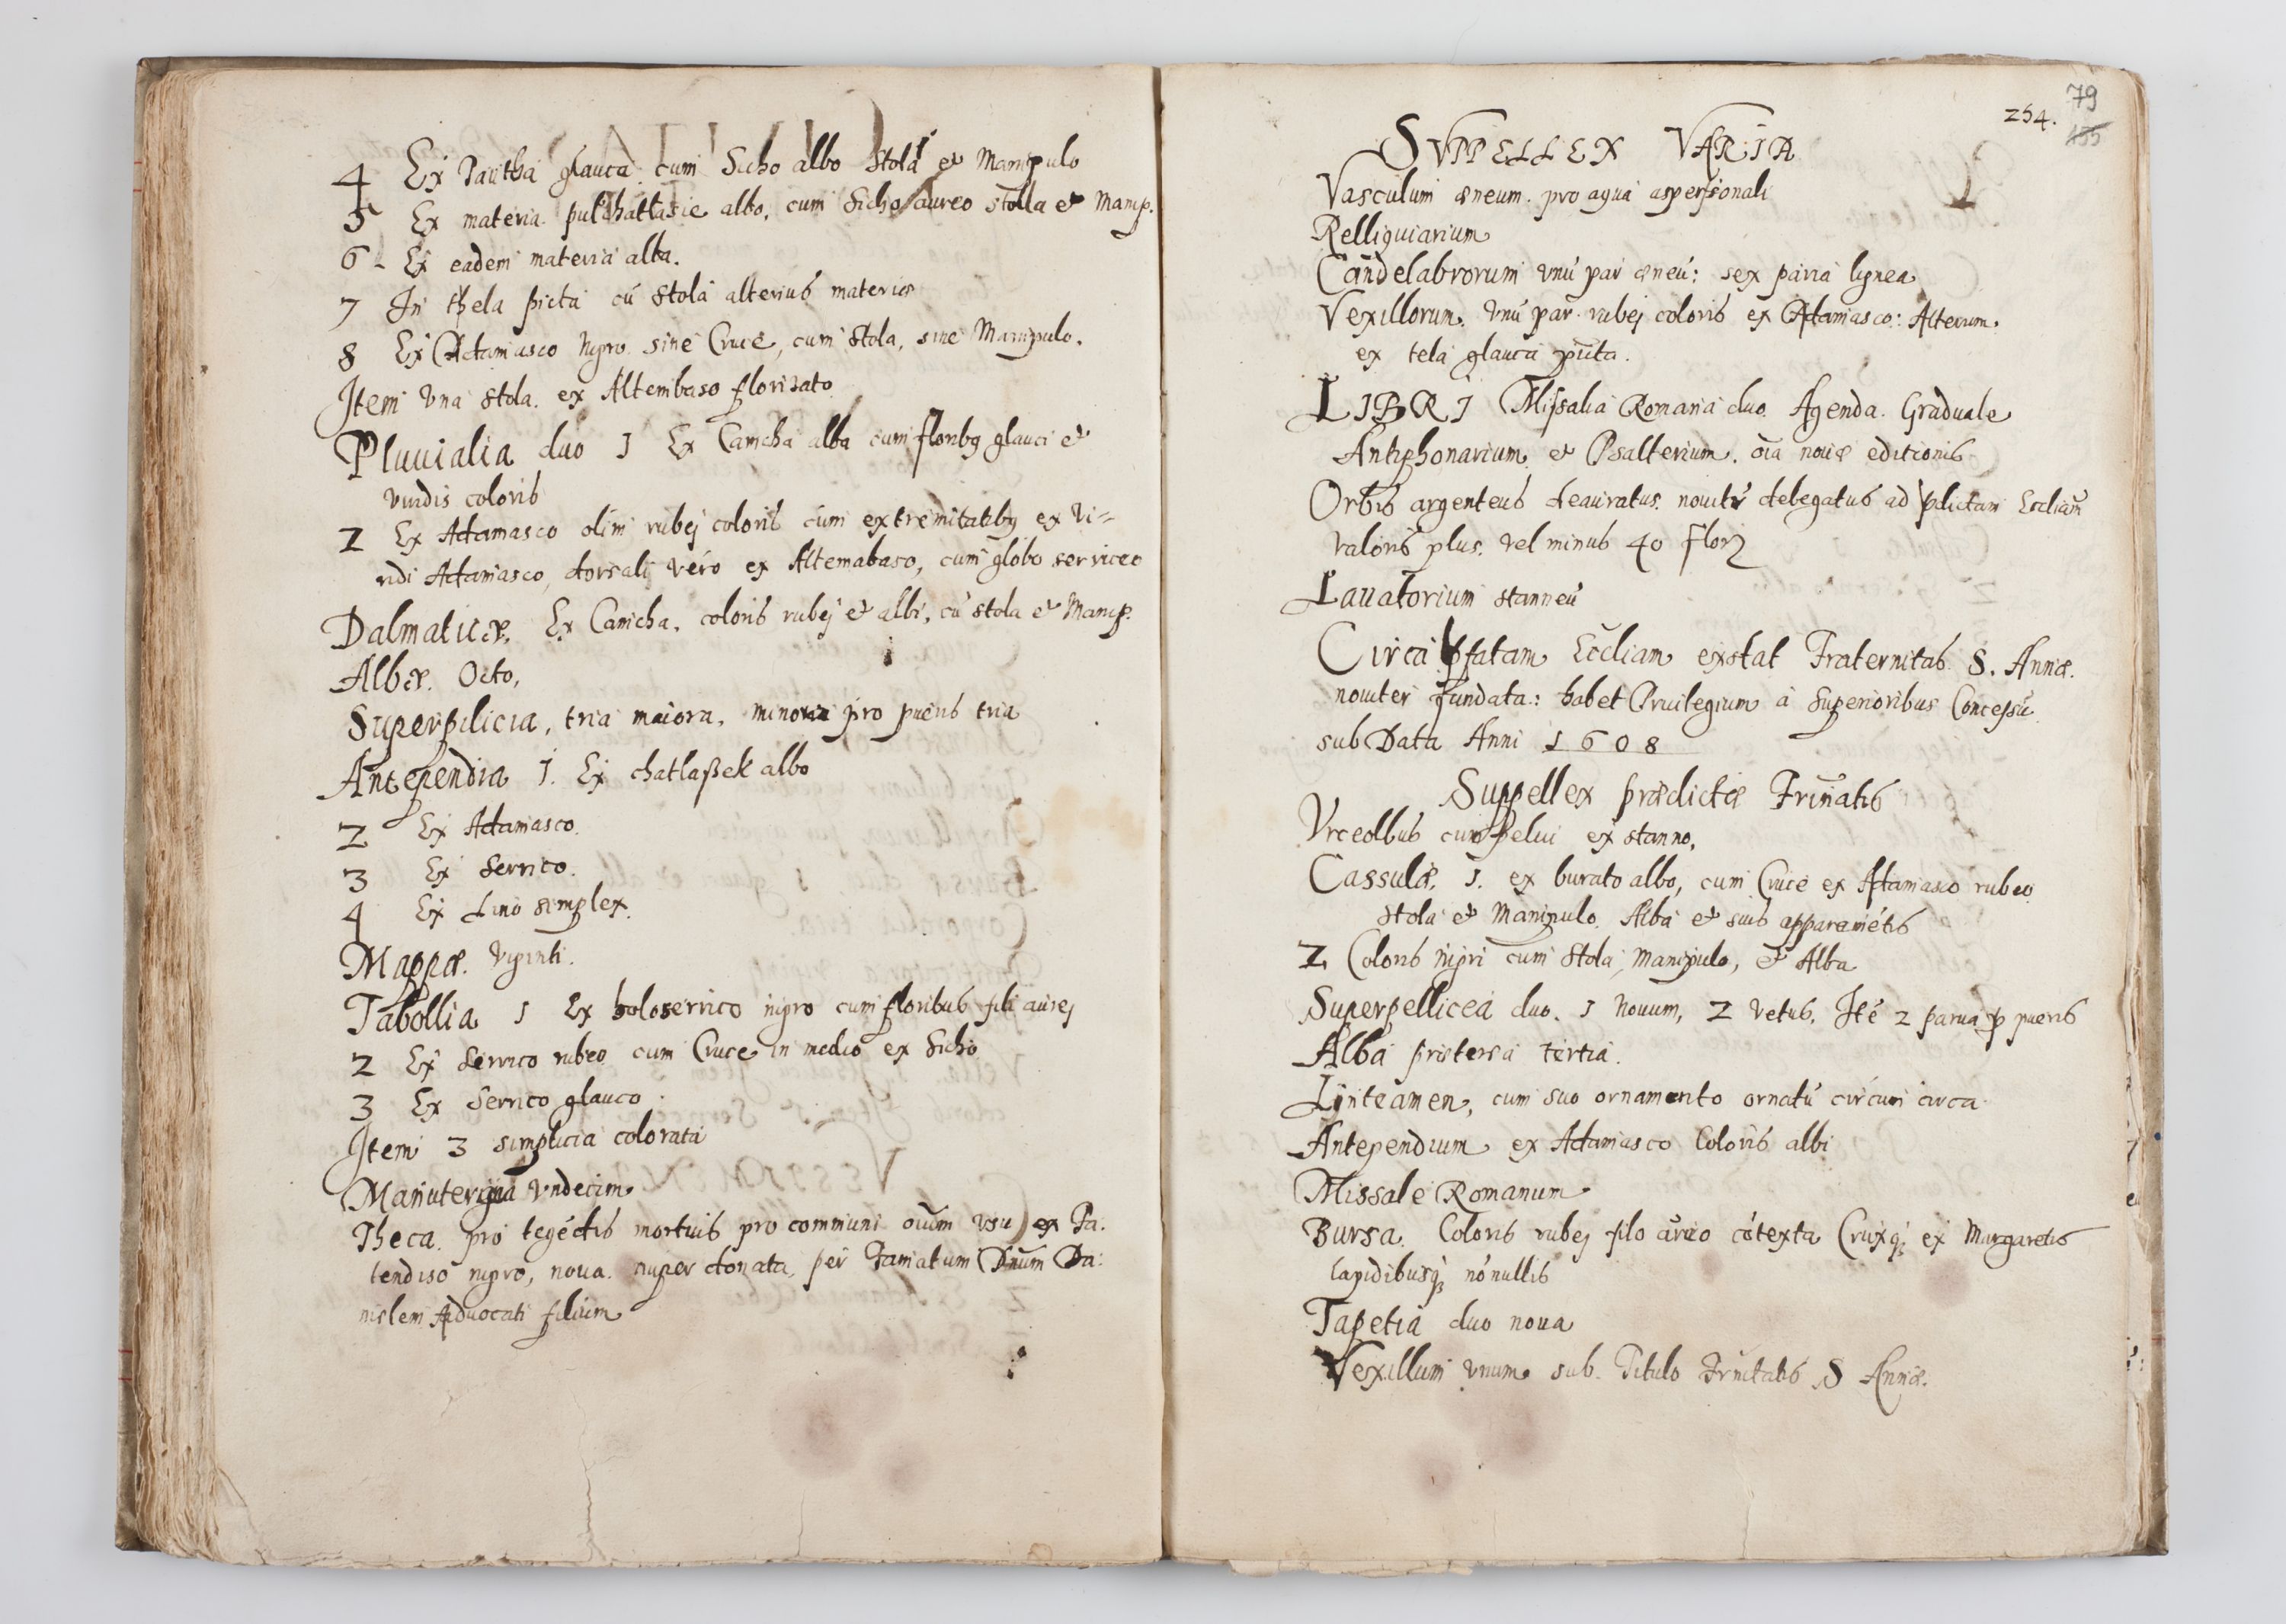 4 Ex Pautha glauca cum Sicho albo Stola et Manipulo
5 Ex materia pulchatlasie albo, cum Sicho aureo stolla et Manip.
6 - Ex eadem materia alba.
7 In thela picta cū Stola alterius materiæ
8 Ex Adamasco nigro sine Cruce, cum Stola, sine Manipulo.
Item Vna Stola. ex Altembaso florisato
Pluuialia duo 1 Ex Camcha alba cum floribꝫ glauci et
viridis coloris
2 Ex Adamasco olim rubej coloris cum extremitatibꝫ ex Vi=
ridi Adamasco, dorsali vero ex Altemabaso, cum globo serriceo
Dalmaticæ. Ex Camcha, coloris rubej et albi, cū stola et Manip.
Albæ. Octo,
Superpilicia, tria maiora, minoria pro pueris tria
Antependia 1. Ex chatlaßek albo
2 Ex Adamasco.
3 Ex Serrico.
4 Ex Lino simplex.
Mappæ. Viginti.
Tabollia 1 Ex holoserrico nigro cum floribus fili aurej
2 Ex Serrico rubeo cum Cruce in medio ex Sicho
3 Ex Serrico glauco.
Item 3 simplicia colorata
Manutergia Vndecim
Theca pro tegēdis mortuis pro communi oīum vsu ex Pa.
tendiso nigro, noua nuper donata, per Famatum Dnum Da:
nielem Aduocati filium
79
254.
SVPPELLEX VARIA
Vasculum æneum pro aqua aspersionali
Relliquiarium
Candelabrorum vnū par æneū: sex paria lignea
Vexillorum. Vnū par rubej coloris ex Adamasco: Alterum
ex tela glauca picta.
LIBRI Missalia Romana duo. Agenda. Graduale
Antiphonarium et Psalterium. oīa nouæ editionis
Orbis argenteus deauratus nouitr delegatus ad pdictam Eccliam
valoris plus vel minus 40 flor
Lauatorium stanneū
Circa pfatam Eccliam exstat Fraternitas S. Annæ.
nouiter fundata: habet Priuilegium a Superioribus Concessū
sub Data Anni 1608
Suppellex prædictæ Frnitatis
Vrceollus cum pelui ex stanno.
Cassulæ. 1. ex burato albo, cum Cruce ex Adamasco rubeo
stola et Manipulo. Alba et suis apparamētis
2 Coloris nigri cum Stola, Manipulo, et Alba
Superpellicea duo. 1 Nouum, 2 Vetus. Itē 2 parua p pueris
Alba præterea tertia.
Lynteamen, cum suo ornamento ornatū circum circa
Antependium ex Adamasco Coloris albi
Missale Romanum
Bursa. Coloris rubej filo aureo cōtexta Cruxqꝫ ex Margaretis
lapidibusqꝫ nōnullis
Tapetia duo noua
Vexillum vnum sub Titulo Frnitatis S Annæ.